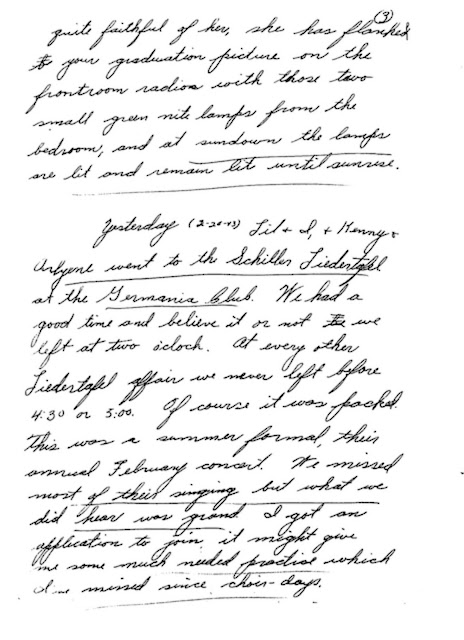 (3)
quite faithful of her, she has flanked
to your graduation picture on the
frontroom radios with those two
small green nite lamps from the
bedroom, and at sundown the lamps
are lit and remain lit until sunrise.
Yesterday (2-20-43) Lil + I, + Henny +
Arlyene went to the Schiller Liedertafel
at the Germania Club. We had a
good time and believe it or not the we
left at two oclock. At every other
Liedertafel affair we never left before
4:30 or 5:00. Of course it was packed.
This was a summer formal, their
annual February concert. We missed
most of their singing but what we
did hear was grand I got an
application to join it might give
me some much needed practise which
I've missed since choir-days.